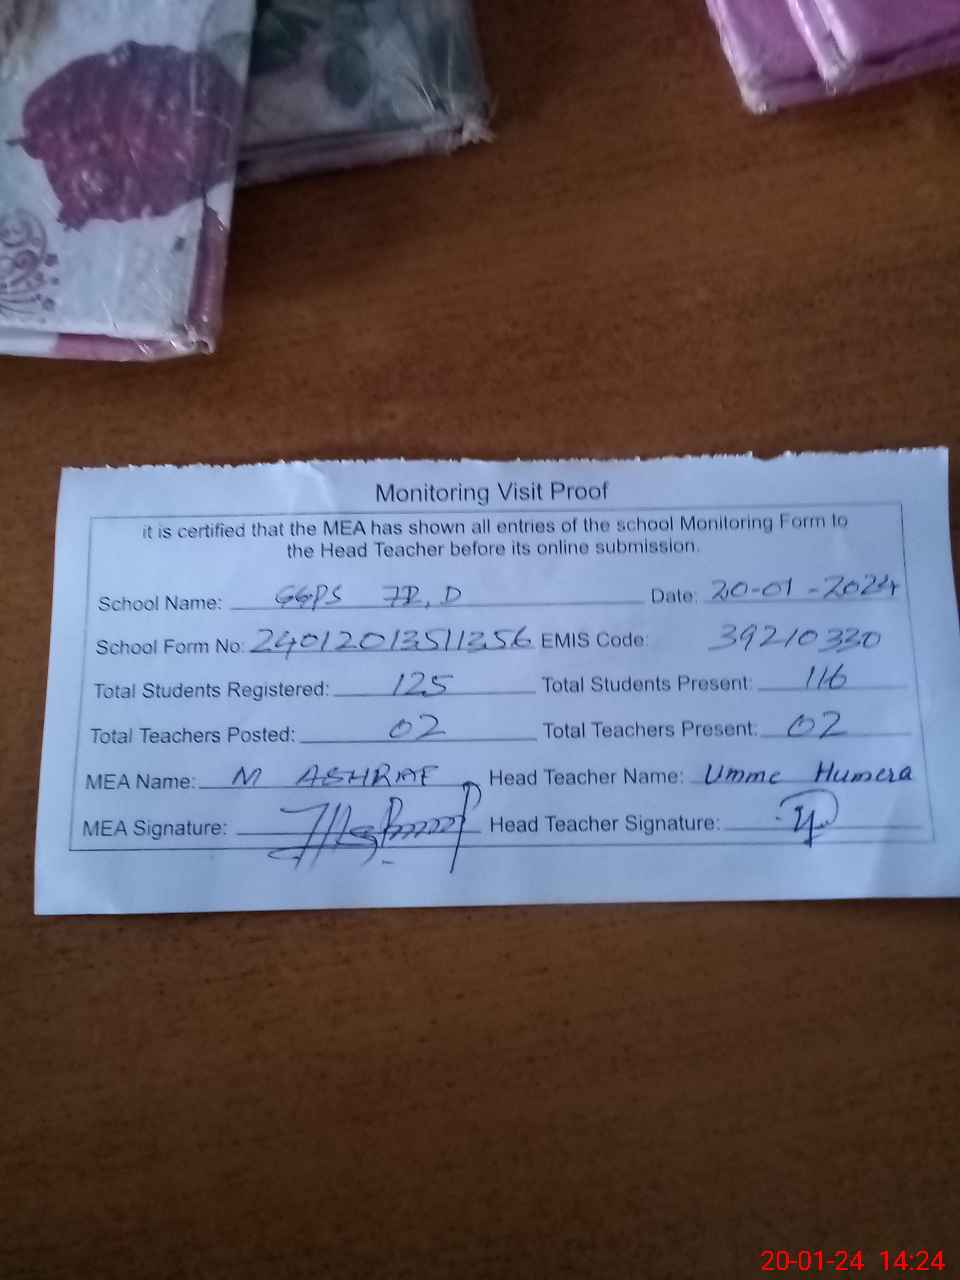 Monitoring Visit Proof
it is certified that the MEA has shown all entries of the school Monitoring Form to
the Head Teacher before its online submission.
School Name: GGPS 7R, D Date: 20-01-2024
School Form No: 24012013511356 EMIS Code: 39210330
Total Students Registered: 125 Total Students Present: 116
Total Teachers Posted: 02 Total Teachers Present: 02
MEA Name: M ASHRAF Head Teacher Name: Umme Humera
MEA Signature: Head Teacher Signature:
20-01-24 14:24